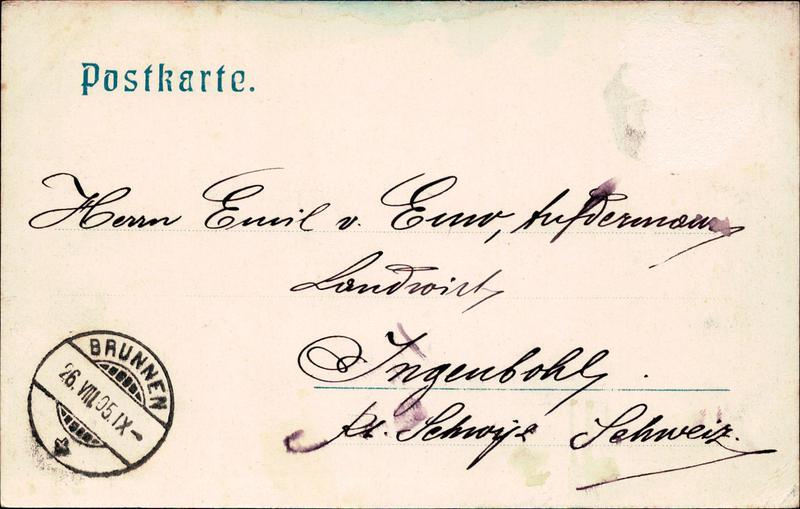 Postkarte.
Herrn Emil v. Euw, Aufdermaur
Landwirt
Ingenbohl.
Kt. Schwyz Schweiz.
BRUNNEN
26. VIII. 05. IX -